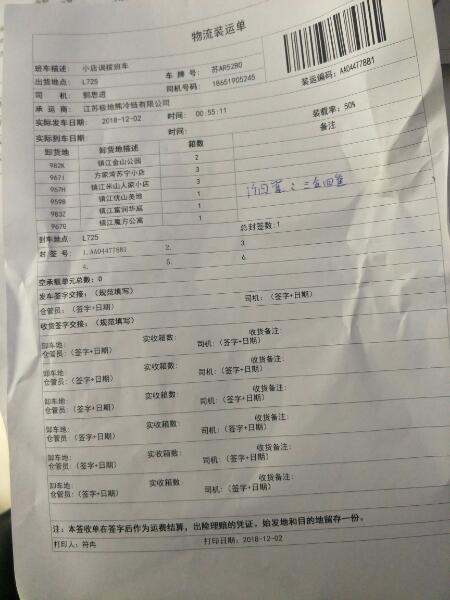 物流装运单
班车描述: 小店调拨班车
出货地点: L725 车 牌 号: 苏AR52B0
司 机: 郭思进 司机号码: 18651905245 装运编码: AA04477881
承 运 商: 江苏极地熊冷链有限公司
实际发车日期: 2018-12-02 时间: 00:55:11 装载率: 50%
实际到车日期: 时间: 备注
卸货地 卸货地描述 箱数
982K 镇江金山公园 2
967I 方家湾苏宁小店 3
967H 镇江米山人家小店 3
959B 镇江优山美地 1
983Z 镇江富润华庭 1
967G 镇江魔方公寓 1
封车地点: L725 总封签数:1
封 签 号: 1.AA04477881 2. 3.
4. 5. 6.
空承载单元总数: 0
发车签字交接: (规范填写)
仓管员: (签字+日期) 司机: (签字+日期)
收货签字交接: (规范填写)
卸车地: 实收箱数: 收货备注:
仓管员: (签字+日期) 司机: (签字+日期)
卸车地: 实收箱数: 收货备注:
仓管员: (签字+日期) 司机: (签字+日期)
卸车地: 实收箱数: 收货备注:
仓管员: (签字+日期) 司机: (签字+日期)
卸车地: 实收箱数: 收货备注:
仓管员: (签字+日期) 司机: (签字+日期)
卸车地: 实收箱数: 收货备注:
仓管员: (签字+日期) 司机: (签字+日期)
注: 本签收单在签字后作为运费结算, 出险理赔的凭证, 始发地和目的地留存一份。
打印人: 符冉 打印日期: 2018-12-02